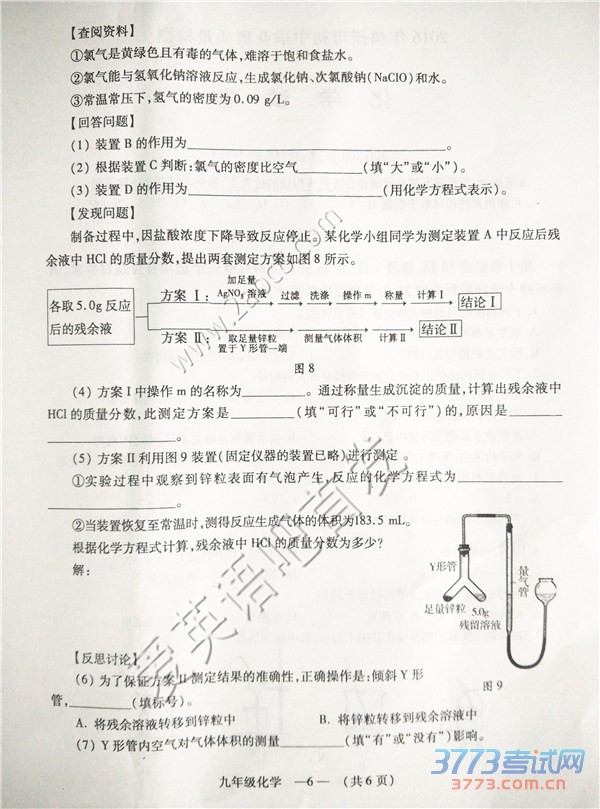 【查阅资料】
①氯气是黄绿色且有毒的气体,难溶于饱和食盐水。
②氯气能与氢氧化钠溶液反应,生成氯化钠、次氯酸钠(NaClO)和水。
③常温常压下,氢气的密度为0.09 g/L。
【回答问题】
(1) 装置 B 的作用为____________________。
(2) 根据装置 C 判断:氯气的密度比空气________(填“大”或“小”)。
(3) 装置 D 的作用为____________________(用化学方程式表示)。
【发现问题】
制备过程中,因盐酸浓度下降导致反应停止。某化学小组同学为测定装置 A 中反应后残
余液中 HCl 的质量分数,提出两套测定方案如图 8 所示。
各取 5.0g 反应
后的残余液
方案 Ⅰ: 加足量 AgNO₃ 溶液 过滤 洗涤 操作 m 称量 计算Ⅰ 结论 Ⅰ
方案 Ⅱ: 取足量锌粒 置于 Y 形管一端 测量气体体积 计算Ⅱ 结论 Ⅱ
图 8
(4) 方案 I 中操作 m 的名称为________。通过称量生成沉淀的质量,计算出残余液中
HCl 的质量分数,此测定方案是________(填“可行”或“不可行”)的,原因是________
________________。
(5) 方案 II 利用图 9 装置(固定仪器的装置已略)进行测定 。
①实验过程中观察到锌粒表面有气泡产生,反应的化学方程式为________
________________。
②当装置恢复至常温时,测得反应生成气体的体积为183.5 mL。
根据化学方程式计算,残余液中 HCl 的质量分数为多少?
解:
Y形管
量气管
足量锌粒 5.0g
残留溶液
图 9
【反思讨论】
(6) 为了保证方案 II 测定结果的准确性,正确操作是:倾斜 Y 形
管,________(填标号)。
A. 将残余溶液转移到锌粒中 B. 将锌粒转移到残余溶液中
(7) Y 形管内空气对气体体积的测量________(填“有”或“没有”)影响。
九年级化学 —6— (共 6 页)
爱英语吧首发
3773考试网
3773.com.cn